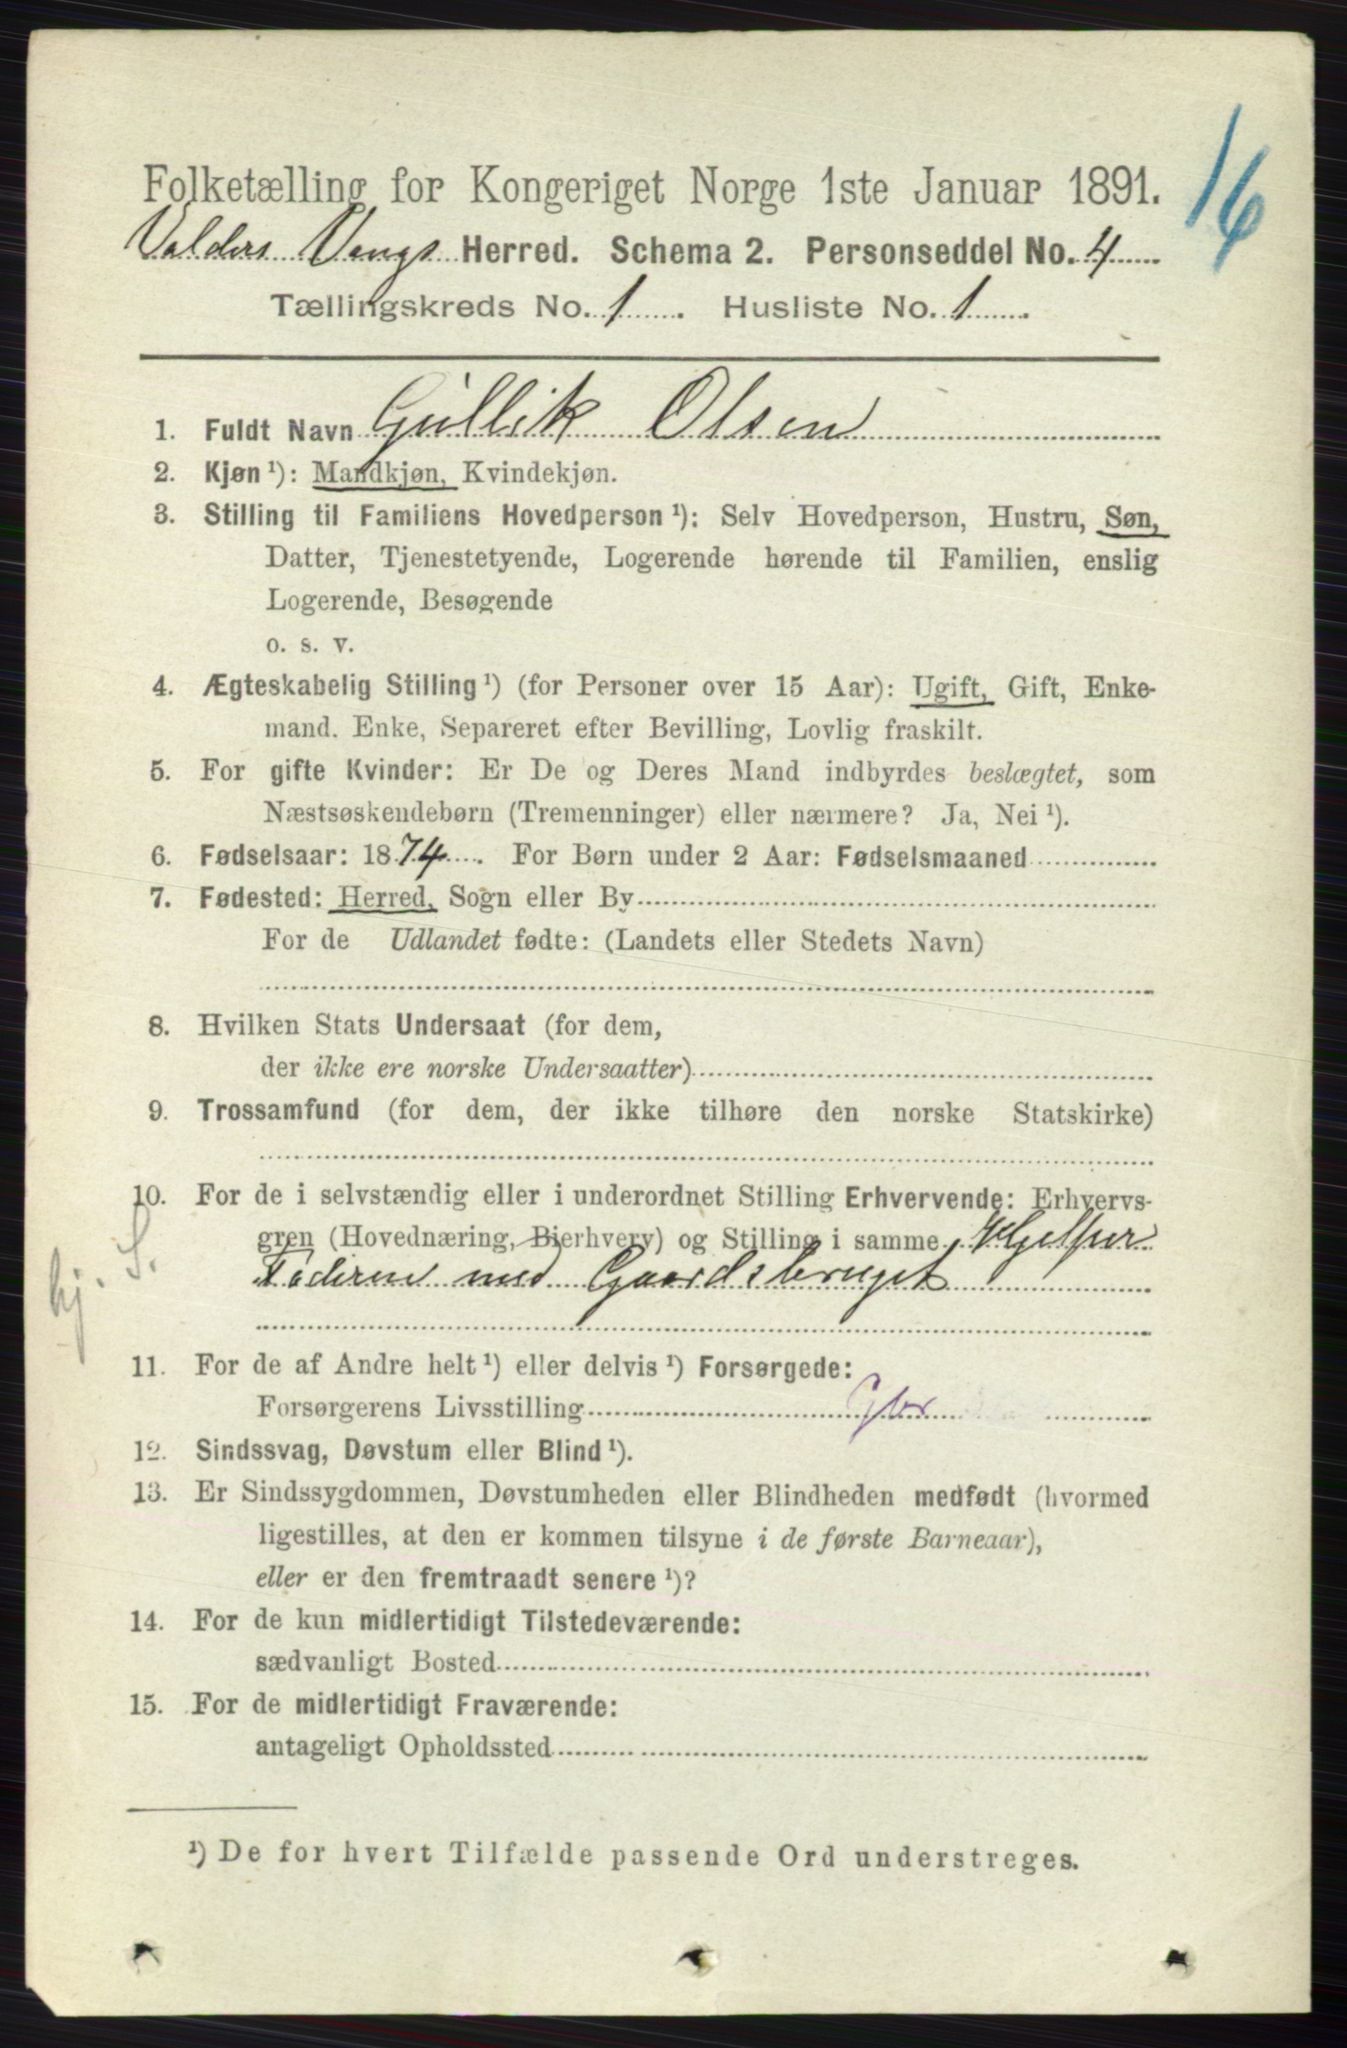 16
Folketælling for Kongeriget Norge 1ste Januar 1891.
Valders Vangs Herred. Schema 2. Personseddel No. 4
Tællingskreds No. 1. Husliste No. 1.
1. Fuldt Navn Gullik Olsen
2. Kjøn ¹): Mandkjøn, Kvindekjøn.
3. Stilling til Familiens Hovedperson ¹): Selv Hovedperson, Hustru, Søn,
Datter, Tjenestetyende, Logerende hørende til Familien, enslig
Logerende, Besøgende
o. s. v.
4. Ægteskabelig Stilling ¹) (for Personer over 15 Aar): Ugift, Gift, Enke-
mand. Enke, Separeret efter Bevilling, Lovlig fraskilt.
5. For gifte Kvinder: Er De og Deres Mand indbyrdes beslægtet, som
Næstsøskendebørn (Tremenninger) eller nærmere? Ja, Nei ¹).
6. Fødselsaar: 1874. For Børn under 2 Aar: Fødselsmaaned
7. Fødested: Herred, Sogn eller By
For de Udlandet fødte: (Landets eller Stedets Navn)
8. Hvilken Stats Undersaat (for dem,
der ikke ere norske Undersaatter)
9. Trossamfund (for dem, der ikke tilhøre den norske Statskirke)
10. For de i selvstændig eller i underordnet Stilling Erhvervende: Erhvervs-
gren (Hovednæring, Bierhverv) og Stilling i samme Hjelper
Faderen med Gaardsbruget
hj. S.
11. For de af Andre helt ¹) eller delvis ¹) Forsørgede:
Forsørgerens Livsstilling
12. Sindssvag, Døvstum eller Blind ¹).
13. Er Sindssygdommen, Døvstumheden eller Blindheden medfødt (hvormed
ligestilles, at den er kommen tilsyne i de første Barneaar),
eller er den fremtraadt senere ¹)?
14. For de kun midlertidigt Tilstedeværende:
sædvanligt Bosted
15. For de midlertidigt Fraværende:
antageligt Opholdssted
¹) De for hvert Tilfælde passende Ord understreges.